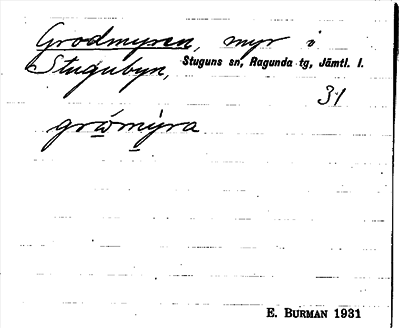 Grodmyren, myr i
Stugubyn, Stuguns sn, Ragunda tg, Jämtl. l.
31
gròmýra
E. BURMAN 1931